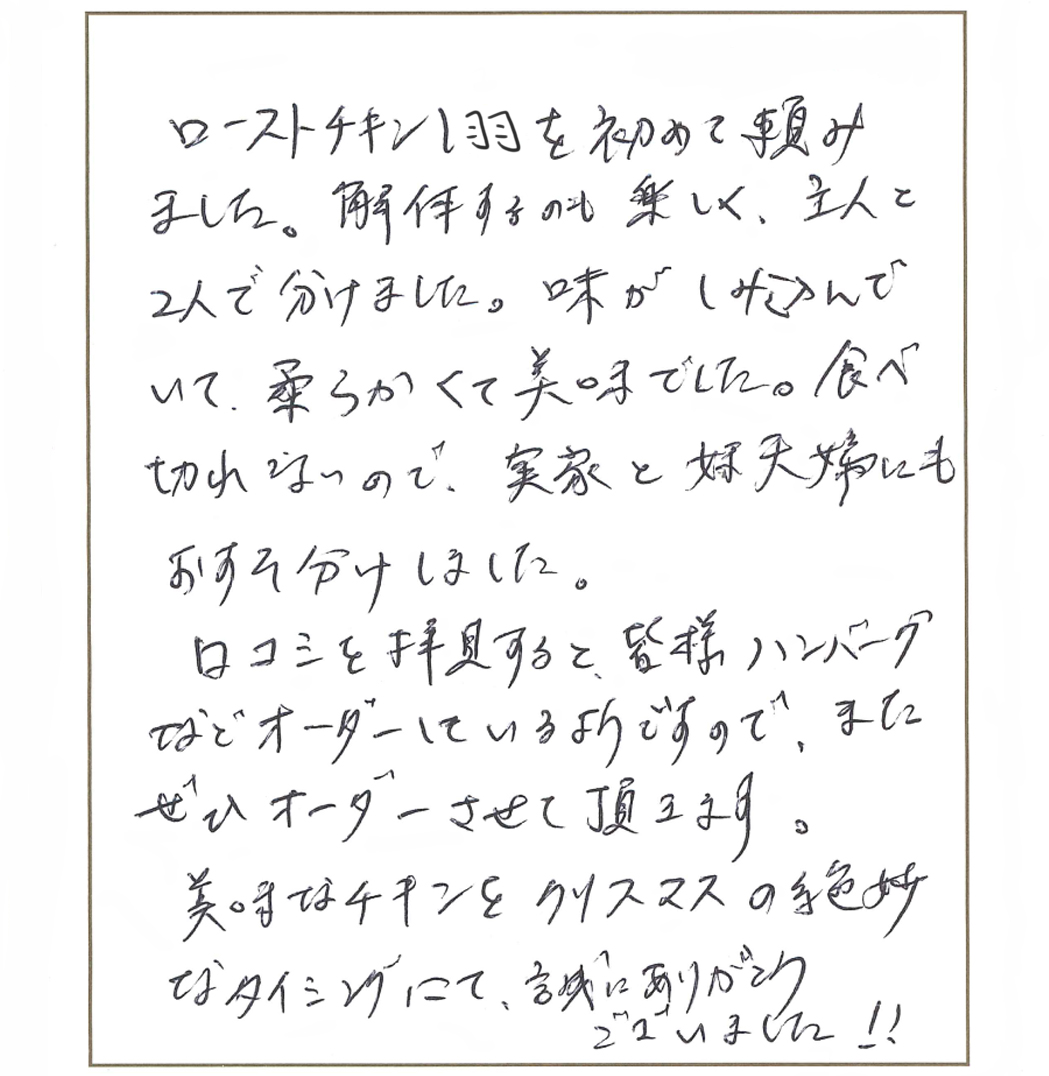 ローストチキン1羽を初めて頼み
ました。解体するのも楽しく、主人と
2人で分けました。味がしみ込んで
いて、柔らかくて美味でした。食べ
切れないので、実家と妹夫婦にも
おすそ分けしました。
口コミを拝見すると、皆様ハンバーグ
などオーダーしているようですので、また
ぜひオーダーさせて頂きます。
美味なチキンをクリスマスの絶妙
なタイミングにて、誠にありがとう
ございました!!